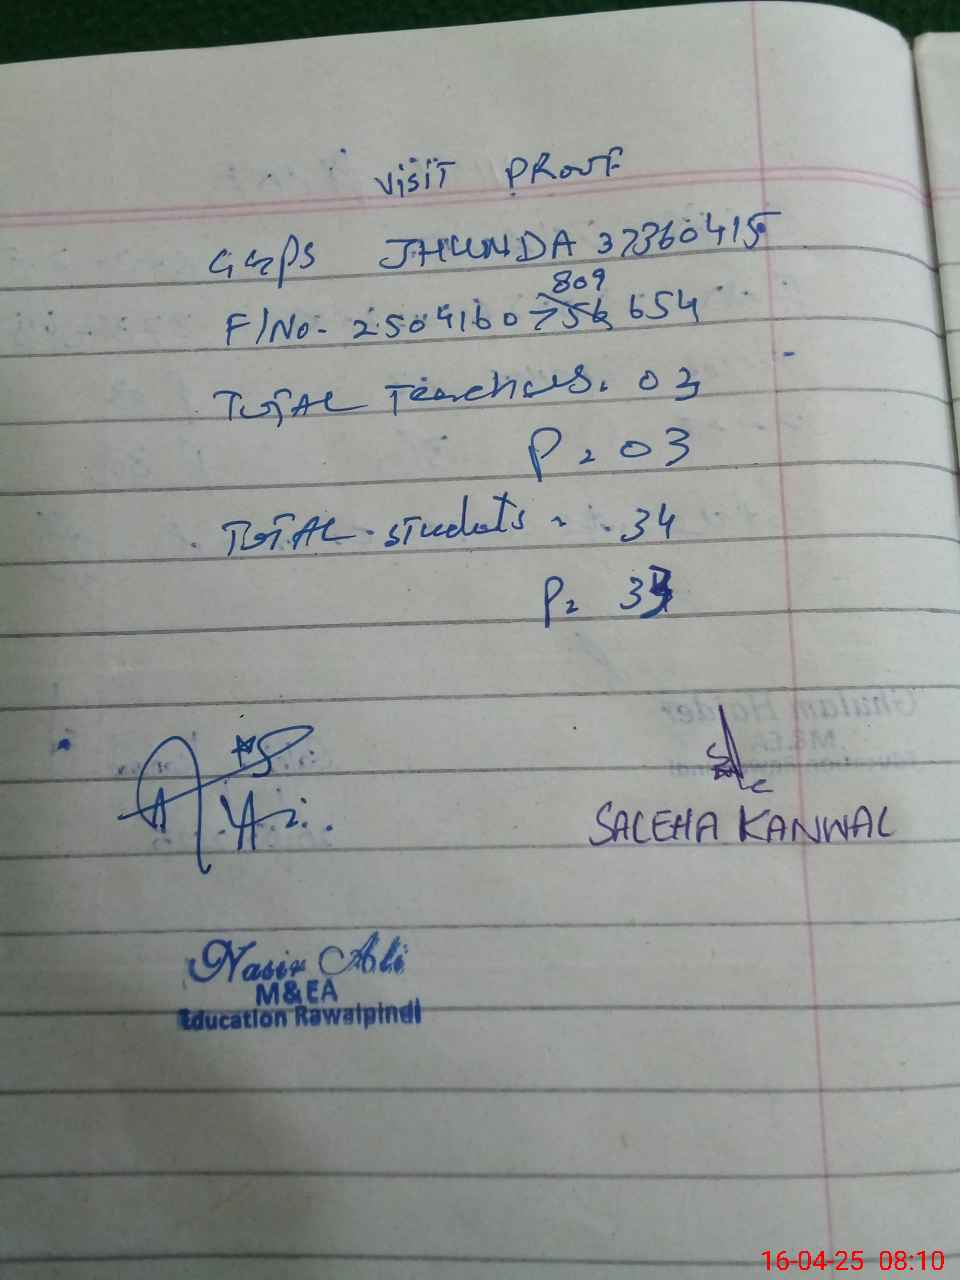 VISIT PROOF
GGPS JHUNDA 37360415
809
F/No. 2504160756654
TOTAL Teachers. 03
P = 03
TOTAL students = 34
P =
SALEHA KANWAL
Nasir Ali
M&EA
Education Rawalpindi
Ghulam Haider
M&EA
16-04-25 08:10